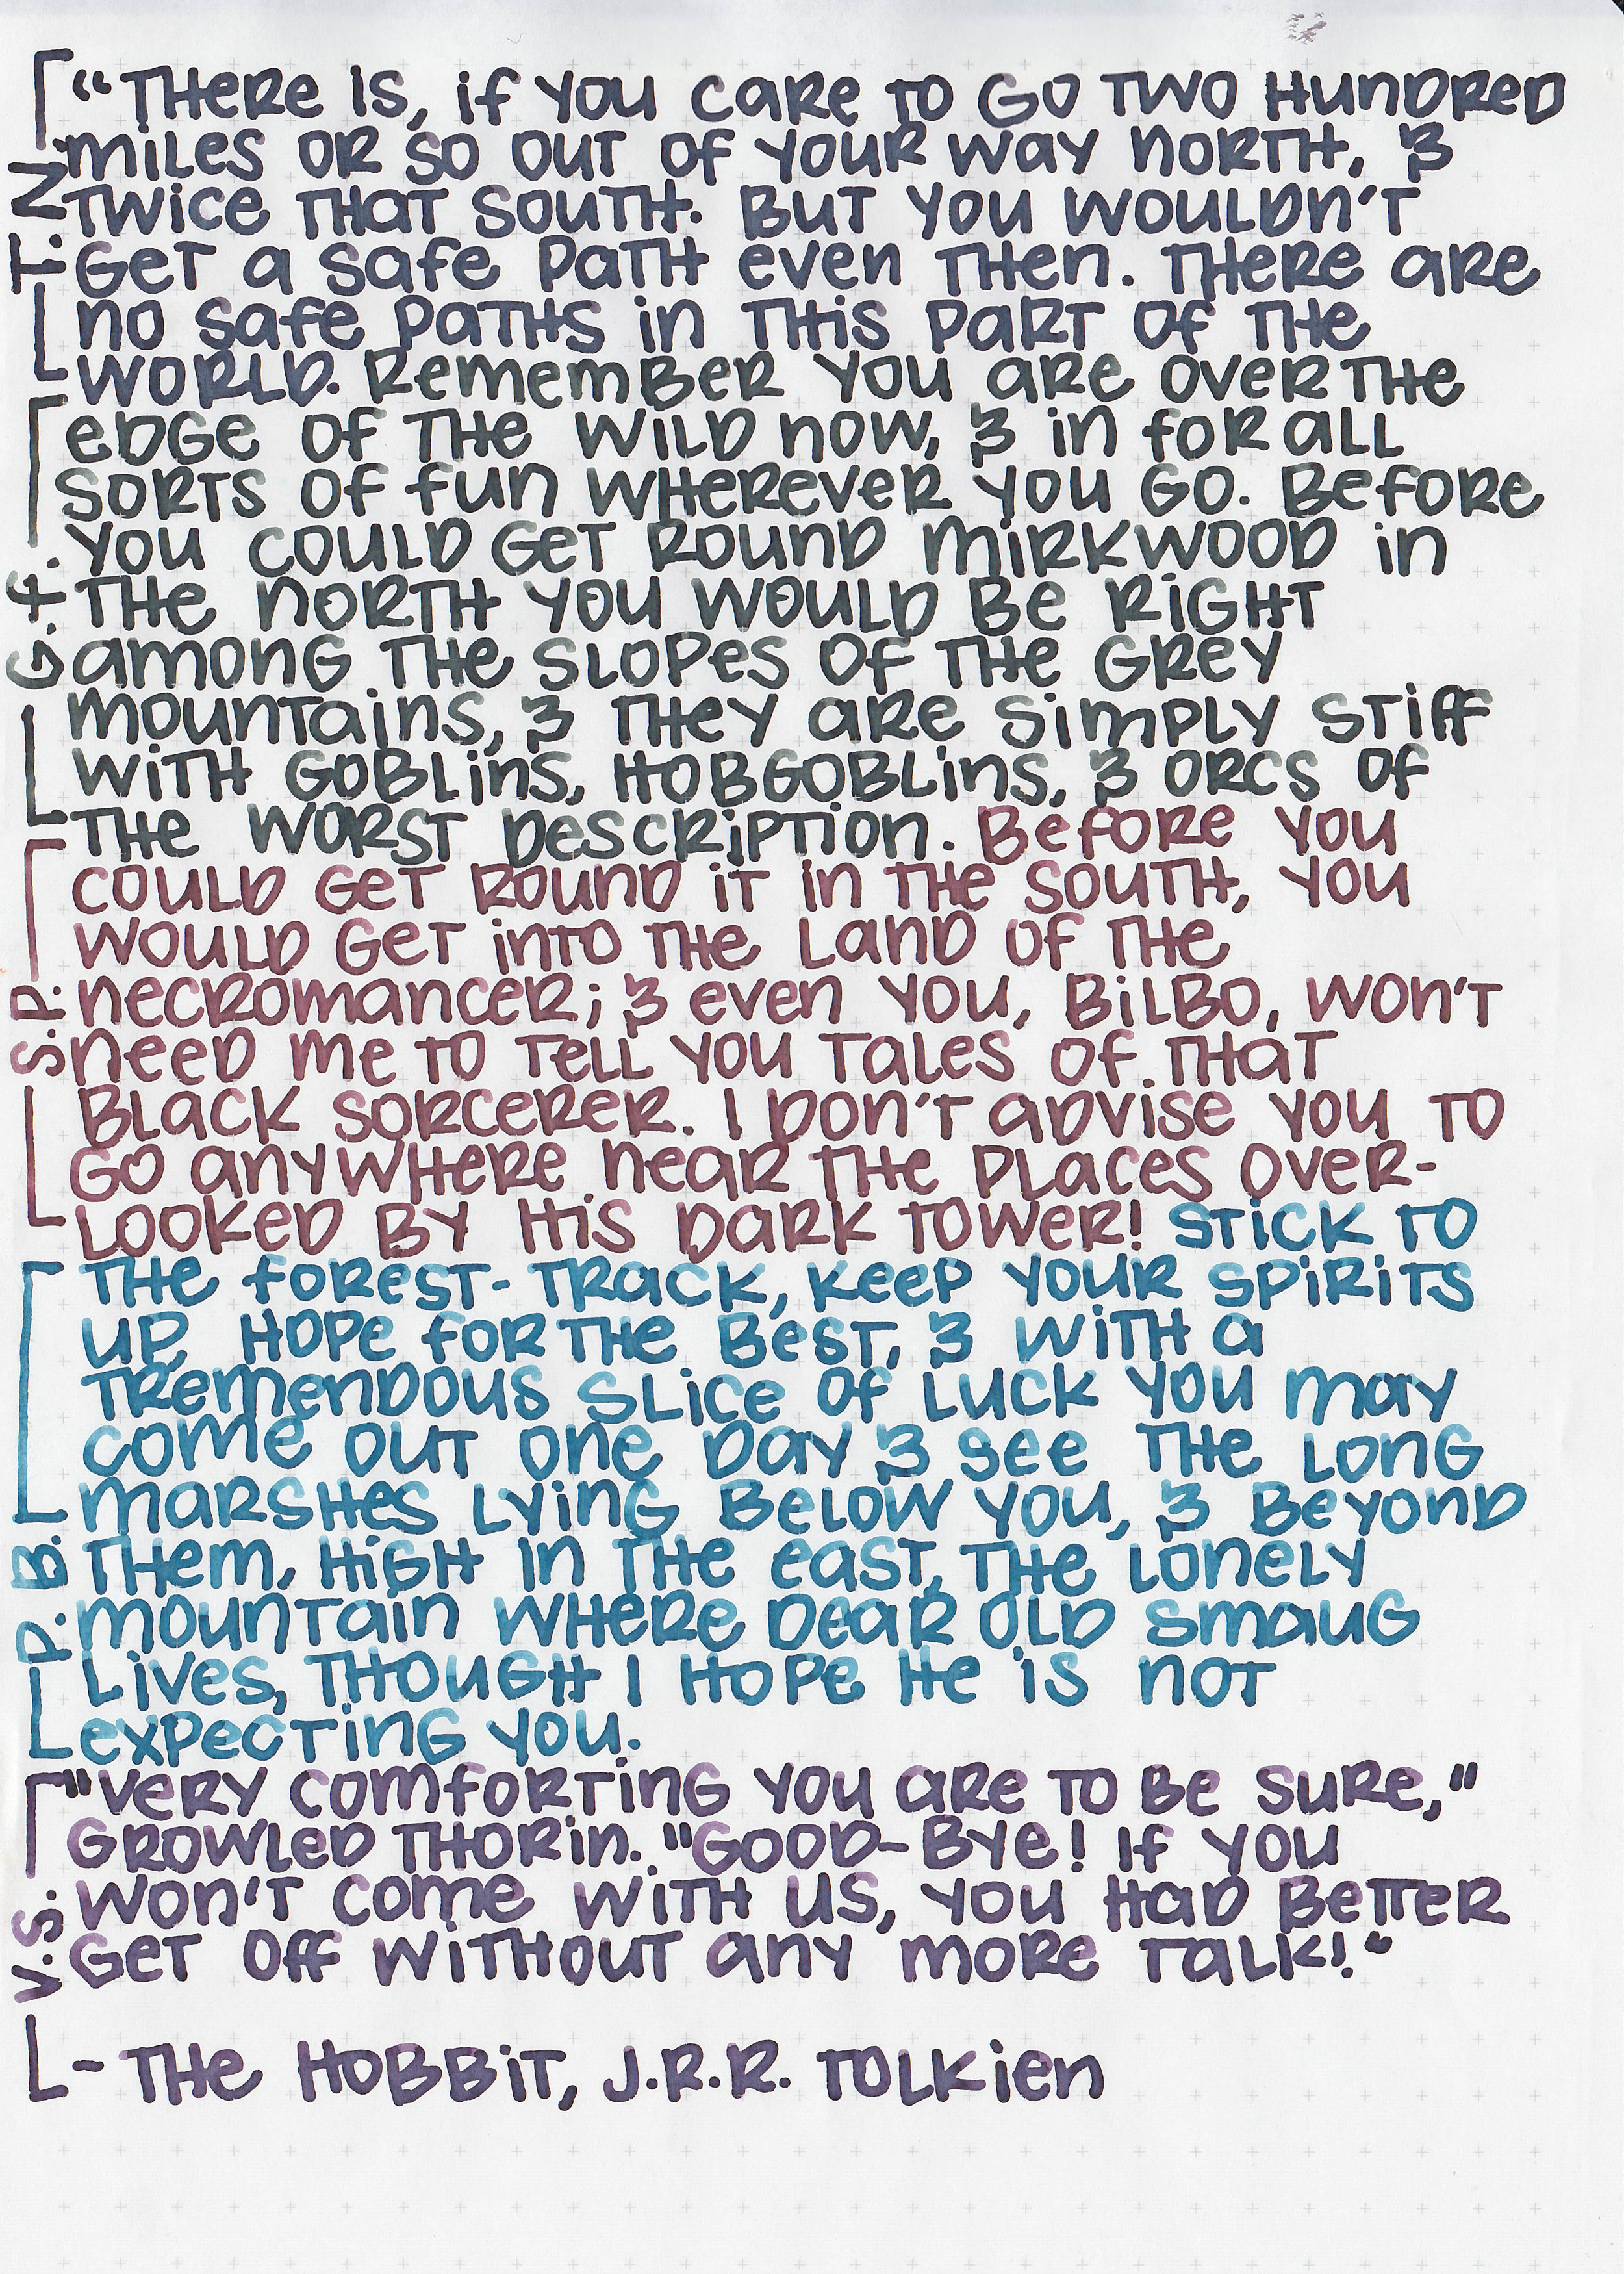 “There is, if you care to go two hundred
miles or so out of your way north, &
twice that south. But you wouldn't
get a safe path even then. There are
no safe paths in this part of the
world. Remember you are over the
edge of the wild now, & in for all
sorts of fun wherever you go. Before
you could get round Mirkwood in
the north you would be right
among the slopes of the Grey
Mountains, & they are simply stiff
with goblins, hobgoblins, & orcs of
the worst description. Before you
could get round it in the south, you
would get into the land of the
Necromancer; & even you, Bilbo, won't
need me to tell you tales of that
black sorcerer. I don't advise you to
go anywhere near the places over-
looked by his dark tower! Stick to
the forest-track, keep your spirits
up, hope for the best, & with a
tremendous slice of luck you may
come out one day & see the Long
Marshes lying below you, & beyond
them, high in the East, the Lonely
Mountain where dear old Smaug
lives, though I hope he is not
expecting you.
"Very comforting you are to be sure,"
growled Thorin. "Good-bye! If you
won't come with us, you had better
get off without any more talk!"
- The Hobbit, J.R.R. Tolkien
T. N.
G. F.
S. P.
P. B.
V. S.